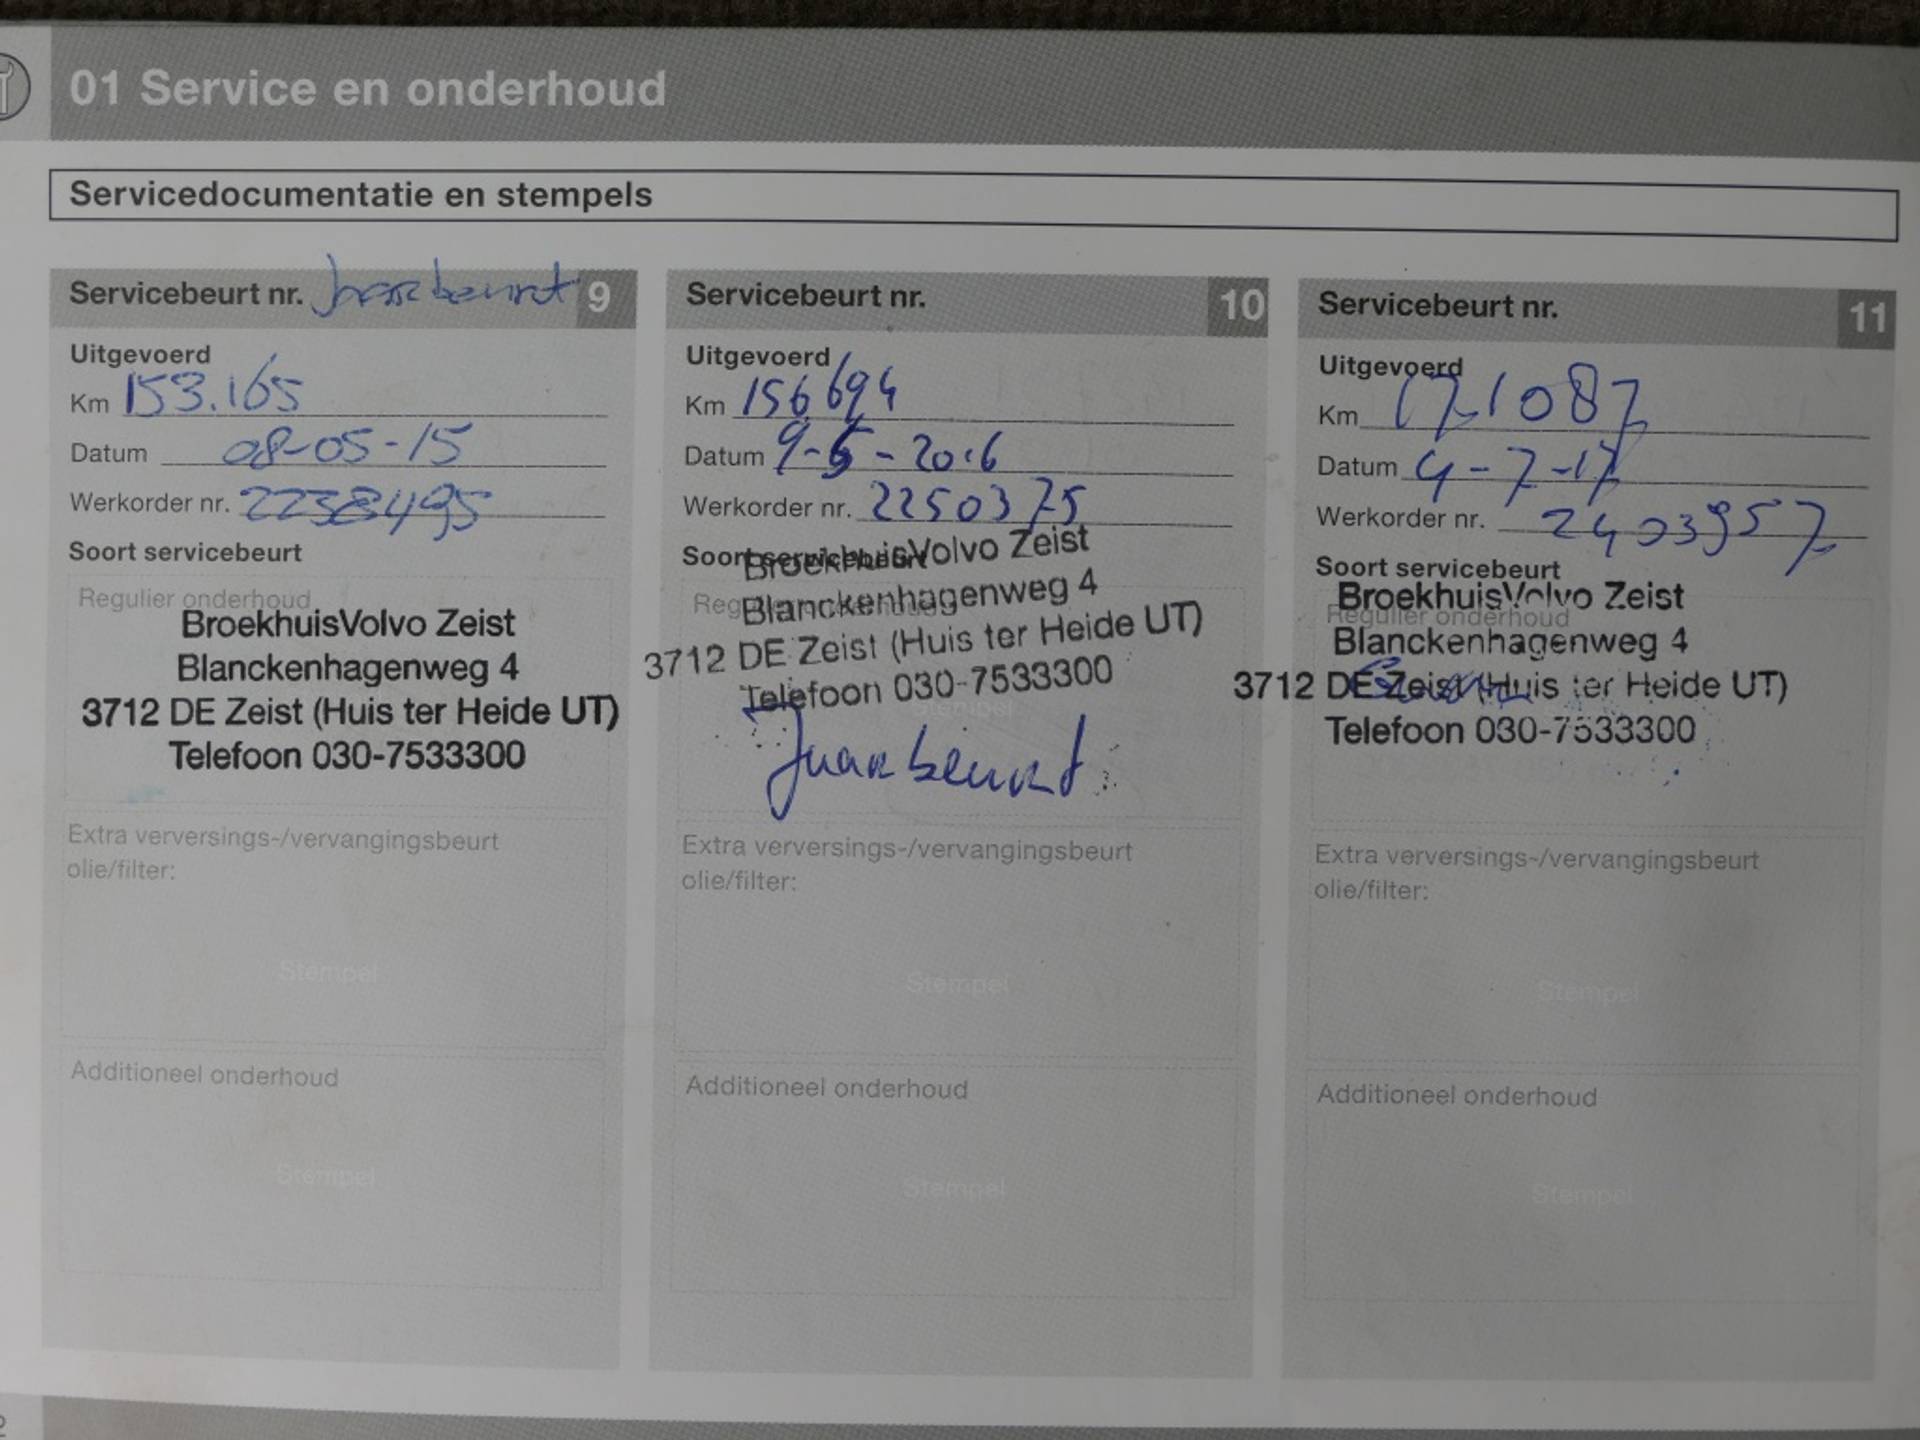 01 Service en onderhoud
Servicedocumentatie en stempels
Servicebeurt nr. Jaarbeurt 9
Uitgevoerd
Km 153.165
Datum 08-05-15
Werkorder nr. 2238495
Soort servicebeurt
Regulier onderhoud
BroekhuisVolvo Zeist
Blanckenhagenweg 4
3712 DE Zeist (Huis ter Heide UT)
Telefoon 030-7533300
Extra verversings-/vervangingsbeurt
olie/filter:
Stempel
Additioneel onderhoud
Stempel
Servicebeurt nr. 10
Uitgevoerd
Km 156694
Datum 9-5-2016
Werkorder nr. 2250375
Soort servicebeurt
BroekhuisVolvo Zeist
Regulier onderhoud
Blanckenhagenweg 4
3712 DE Zeist (Huis ter Heide UT)
Telefoon 030-7533300
Stempel
Jaarbeurt
Extra verversings-/vervangingsbeurt
olie/filter:
Stempel
Additioneel onderhoud
Stempel
Servicebeurt nr. 11
Uitgevoerd
Km 171087
Datum 4-7-17
Werkorder nr. 2403957
Soort servicebeurt
BroekhuisVolvo Zeist
Regulier onderhoud
Blanckenhagenweg 4
3712 DE Zeist (Huis ter Heide UT)
Telefoon 030-7533300
Extra verversings-/vervangingsbeurt
olie/filter:
Stempel
Additioneel onderhoud
Stempel
2